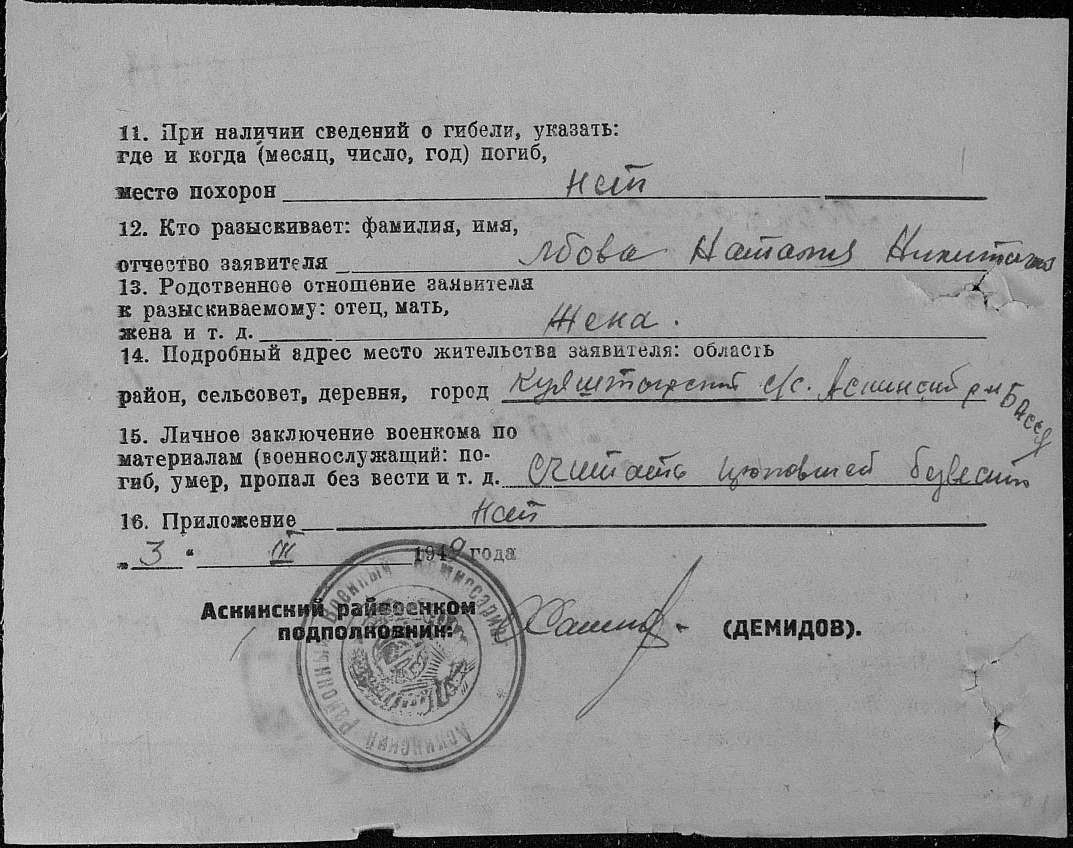 11. При наличии сведений о гибели, указать:
где и когда (месяц, число, год) погиб,
место похорон нет
12. Кто разыскивает: фамилия, имя,
отчество заявителя Ябова Наталия
13. Родственное отношение заявителя
к разыскиваемому: отец, мать,
жена и т. д. Жена.
14. Подробный адрес место жительства заявителя: область
район, сельсовет, деревня, город с/с. Аскинский р-н БАССР
15. Личное заключение военкома по
материалам (военнослужащий: по-
гиб, умер, пропал без вести и т. д. считать пропавшей безвести
16. Приложение нет
„ 3 “ III 1949 года
Аскинский райвоенком
подполковник: (ДЕМИДОВ).
Аскинский Районный Военный Комиссариат